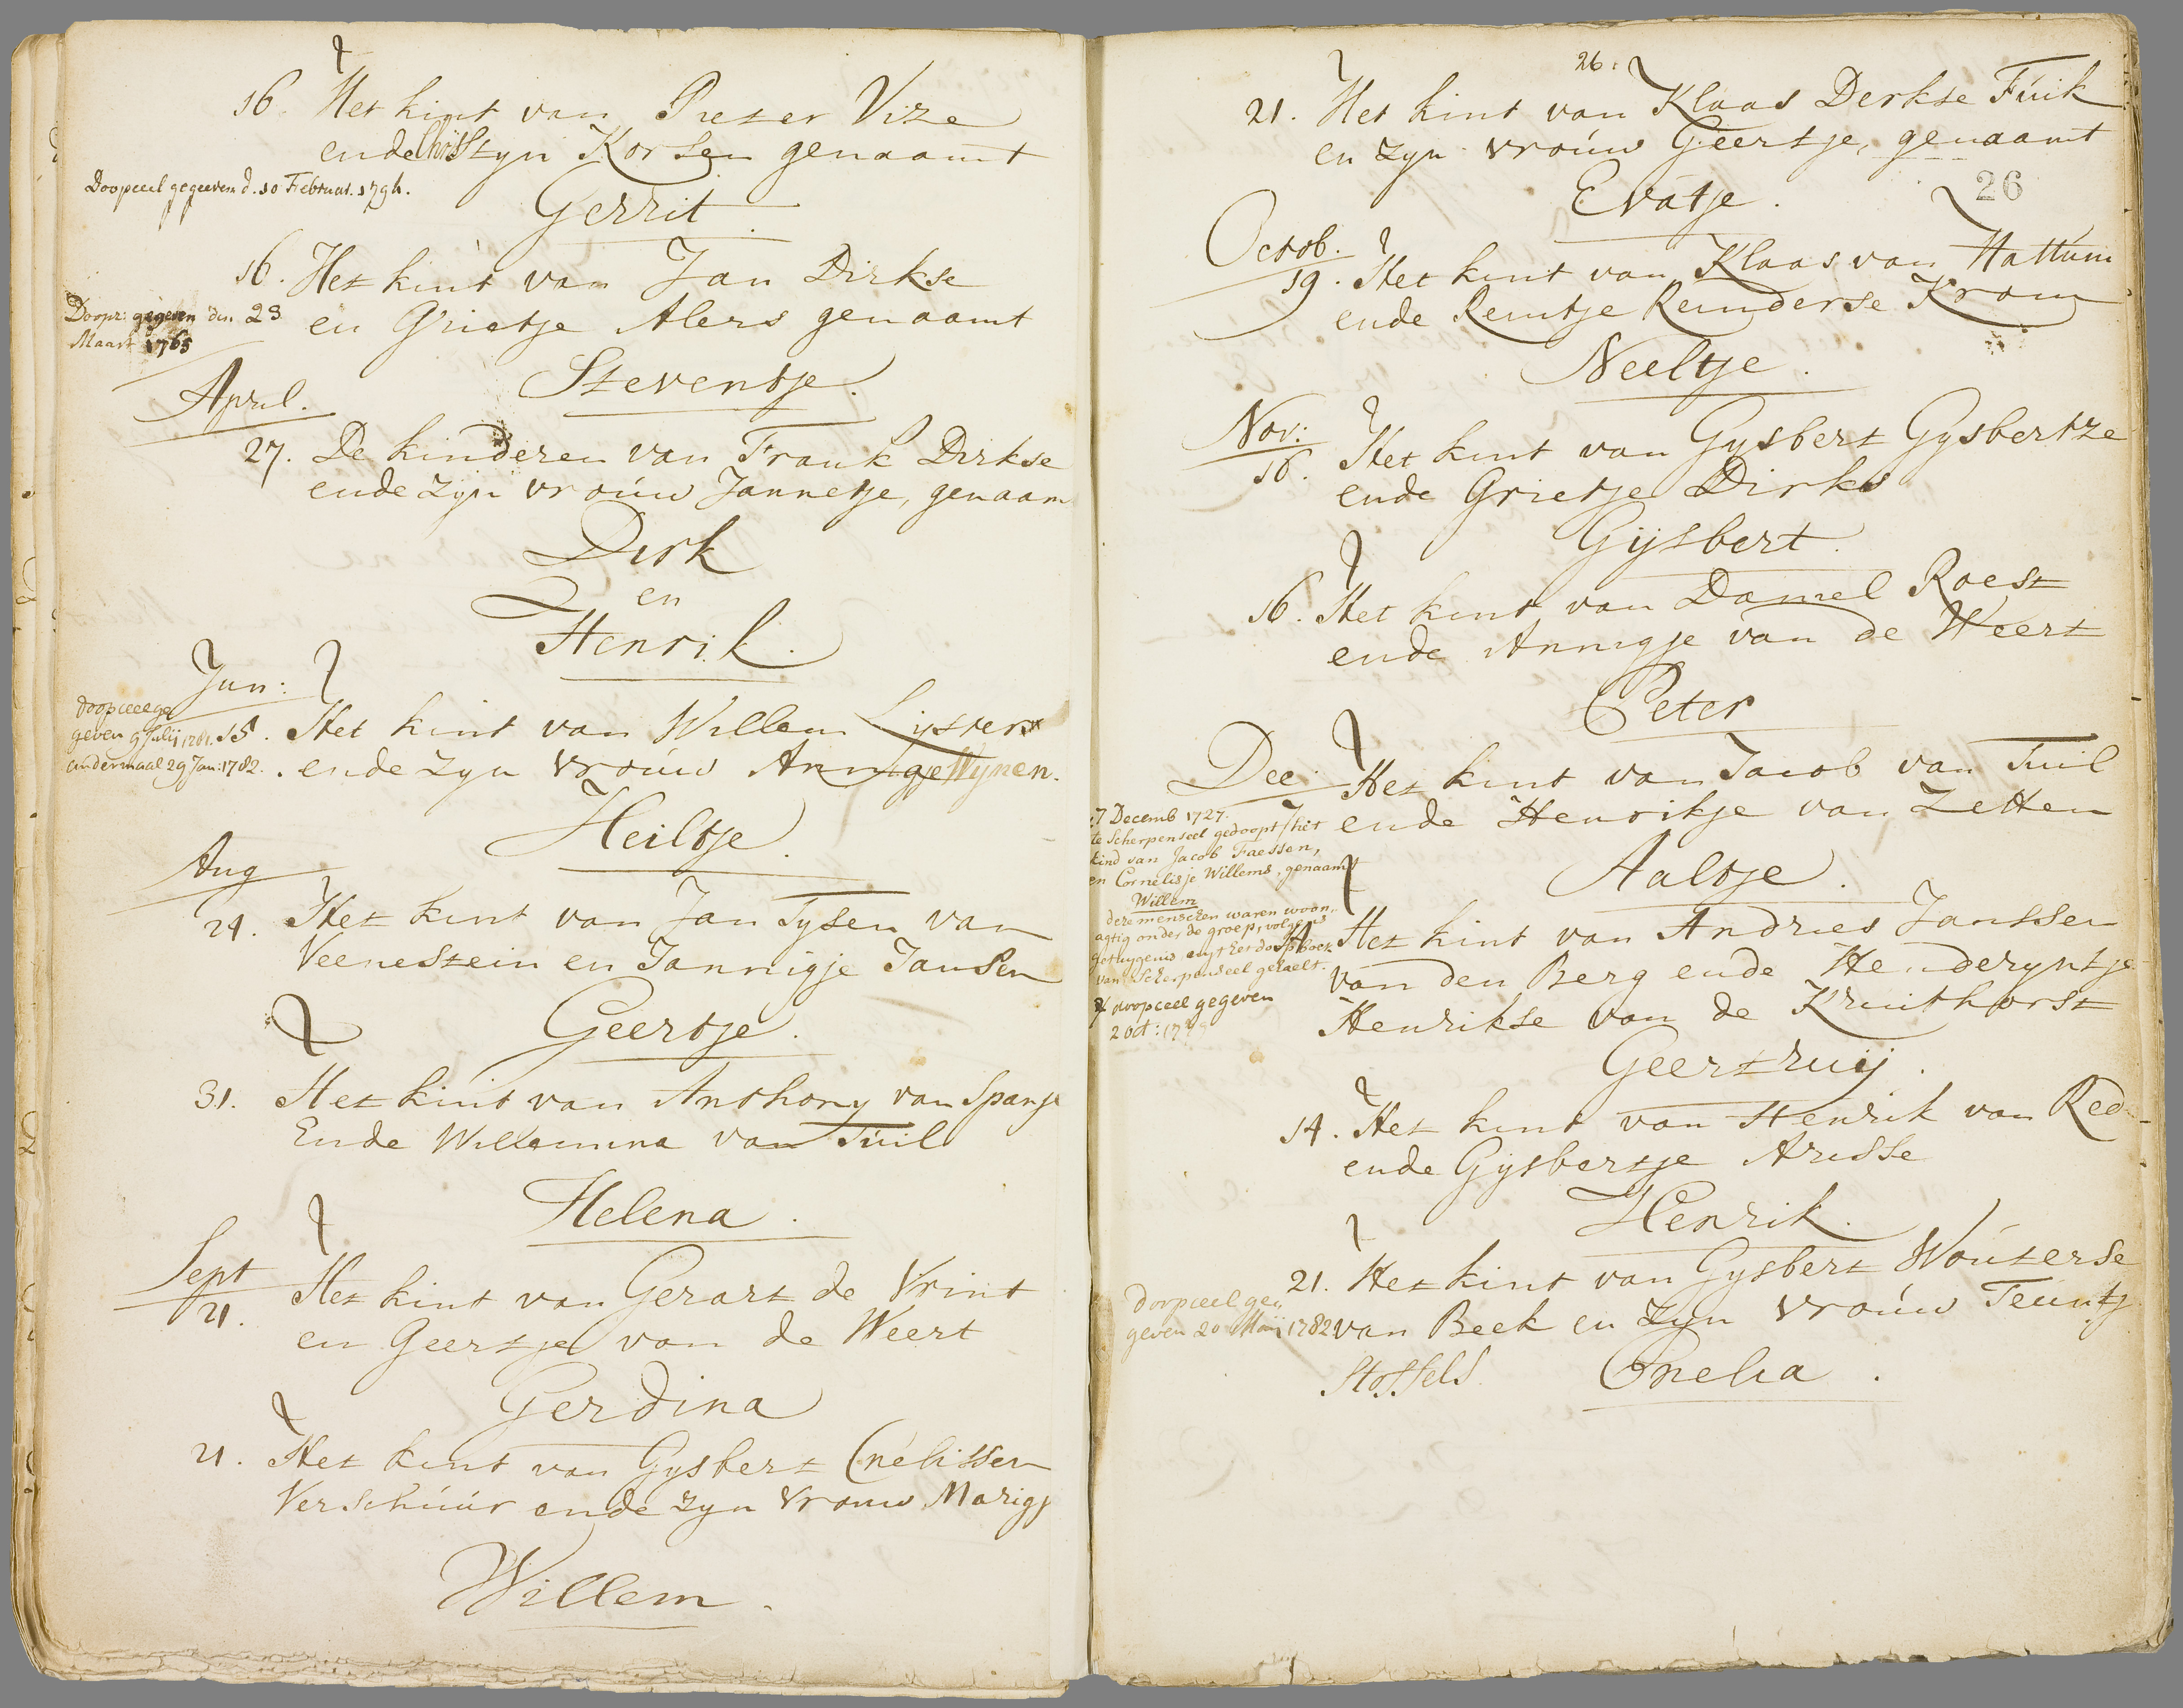 16. Het kint van Peter Vize
ende Christyn Korsen genaamt
Doopceel gegeven d. 10 Februar. 1794.
Gerrit
16. Het kint van Jan Dirkse
Doopc: gegeven den 23
Maart 1765
en Grietje Alers genaamt
Steventje.
April.
27. De kinderen van Frank Dirkse
ende zyn vrouw Jannetje, genaam
Dirk
en
Henrik.
Jun:
doopceel ge
geven 9 Julij 1781.
andermaal 29 Jan: 1782.
15. Het kint van Willem Lysters
ende zyn vrouw Annigje Wynen.
Heiltje.
Aug
24. Het kint van Jan Tysen van
Veenestein en Jannigje Jansen
Geertje.
31. Het kint van Anthony van Spanje
Ende Willemina van Tuil
Helena.
Sept
21. Het kint van Gerart de Vrint
en Geertje van de Weert
Gerdina
21. Het kint van Gysbert Cnelissen
Verschuur ende zyn vrouw Marigj
Willem.
26.
21. Het kint van Klaas Derkse Fuik
en zyn vrouw Geertje, genaamt
Evatje.
26
Octob.
19. Het kint van Klaas van Hattum
ende Reintje Reinderse Krom
Neeltje.
Nov:
16. Het kint van Gysbert Gysbertze
ende Grietje Dirks
Gijsbert.
16. Het kint van Daniel Roest
ende Annigje van de Weert
Peter
Dec: Het kint van Jacob van Tuil
7 ende Henrikje van Zetten
Aaltje.
7 Decemb 1727.
te Scherpenseel gedoopt / het
kind van Jacob Faessen,
en Cornelisje Willems, genaamt
Willem
deze menschen waren woon-
agtig onder de groep, volgens
getuygenis, uyt het doopboek
van Scherpenseel gehaelt.
doopceel gegeven
2 Oct:
14. Het kint van Andries Janssen
van den Berg ende Henderyntje
Henrikse van de Kruithorst
Geertruij.
14. Het kint van Henrik van Ree
ende Gysbertje Arisse
Henrik.
21. Het kint van Gysbert Wouterse
doopceel ge
geven 20 Maij 1782
van Beek en zyn vrouw Teuntj
Stoffels Cnelia.